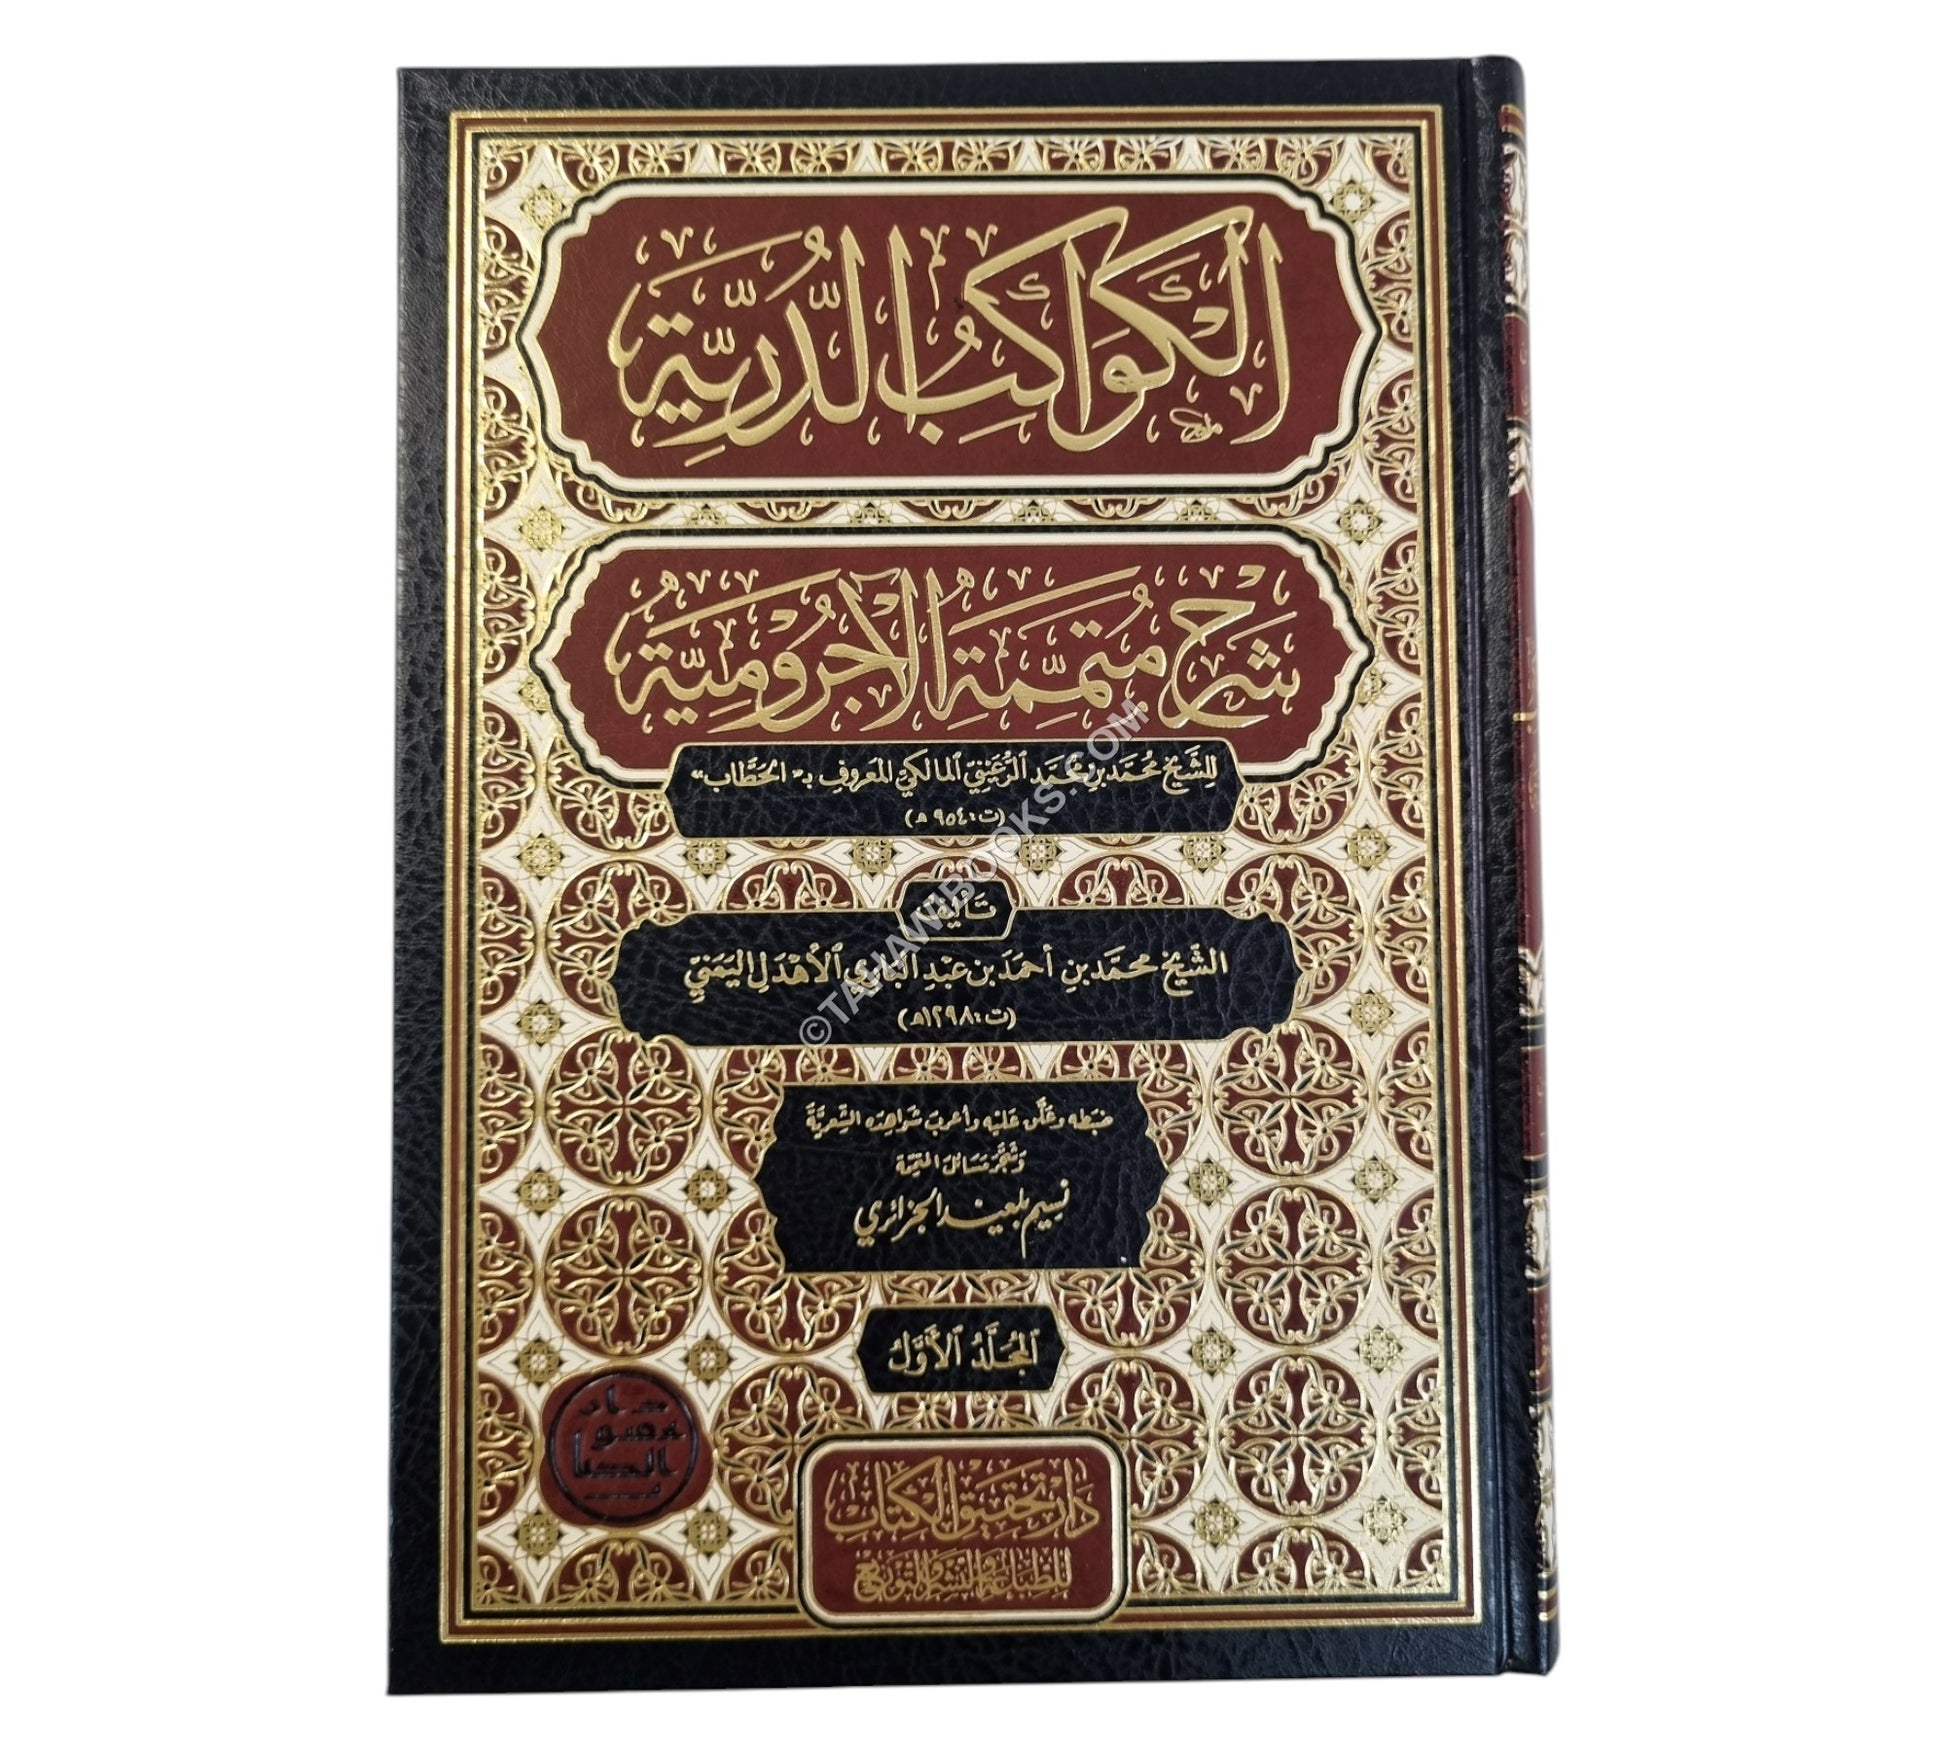 الكَوَاكِبُ الدُّرِّيَّةِ
شَرْحُ مُتَمِّمَةِ الْآجُرُّومِيَّةِ
لِلشَّيْخِ مُحَمَّد بن مُحَمَّد الرُّعَيْنِيِّ المَالِكِيِّ المَعْرُوفِ بـ «الحَطَّاب»
(ت: ٩٥٤ هـ)
تَأليف
الشَّيْخ مُحَمَّد بْنِ أحْمَدَ بن عَبْدِ البَارِي الأَهْدَلِ اليَمَنِيّ
(ت: ١٢٩٨هـ)
ضبَطه وعَلَّق عَليْه وأعرَب شَوَاهِدَه الشِّعريَّةَ
وَشَجَّرَ مَسَائلَ المتممة
نسِيم بلعيد الجزائري
المُجَلَّدُ الأَوَّلُ
دَار تحقيق الكتاب
للطباعة والنشر والتوزيع
©TAHAWIBOOKS.COM